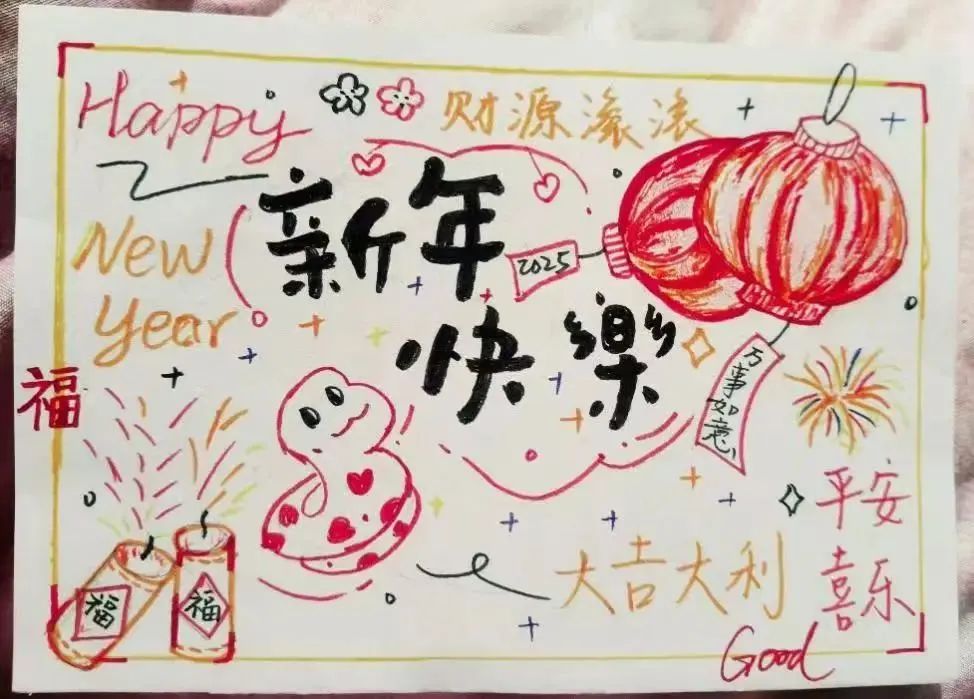 Happy
财源滚滚
新年
New
2025
Year
快樂
万事如意
福
平安
喜乐
福
福
大吉大利
Good